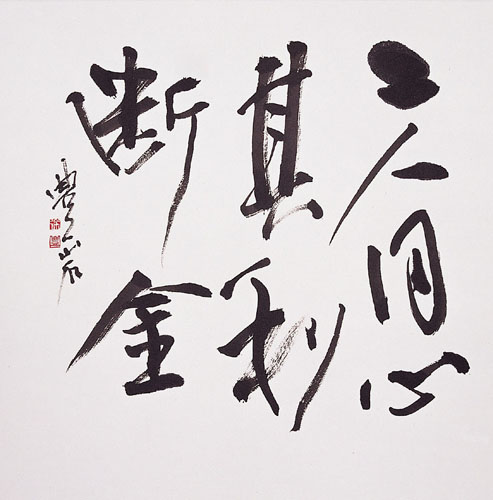 二人同心
其利
断金